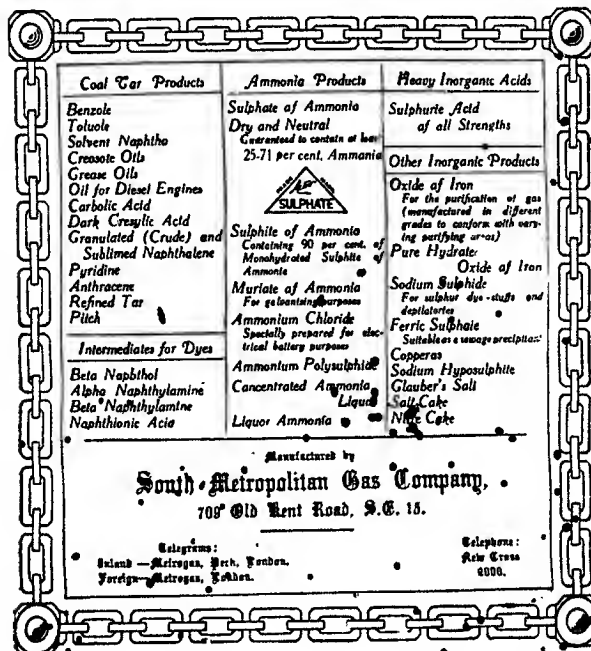 Coal Tar Products
Benzole
Toluole
Solvent Naphtha
Creosote Oils
Grease Oils
Oil for Diesel Engines
Carbolic Acid
Dark Cresylic Acid
Granulated (Crude) and
Sublimed Naphthalene
Pyridine
Anthracene
Refined Tar
Pitch
Intermediates for Dyes
Beta Naphthol
Alpha Naphthylamine
Beta Naphthylamine
Naphthionic Acid
Ammonia Products
Sulphate of Ammonia
Dry and Neutral
Guaranteed to contain at least
25-71 per cent. Ammania
SULPHATE
Sulphite of Ammonia
Containing 90 per cent. of
Monohydrated Sulphite of
Ammonia
Muriate of Ammonia
For galvanising purposes
Ammonium Chloride
Specially prepared for elec-
trical battery purposes
Ammonium Polysulphide
Concentrated Ammonia
Liquor
Liquor Ammonia
Heavy Inorganic Acids
Sulphuric Acid
of all Strengths
Other Inorganic Products
Oxide of Iron
For the purification of gas
(manufactured in different
grades to conform with vary-
ing purifying areas)
Pure Hydrate
Oxide of Iron
Sodium Sulphide
For sulphur dye-stuffs and
depilatories
Ferric Sulphate
Suitable as a sewage precipitant
Copperas
Sodium Hyposulphite
Glauber's Salt
Salt Cake
Nitre Cake
Manufactured by
South Metropolitan Gas Company,
709 Old Kent Road, S.E. 15.
Telegrams:
Inland—Metrogas, Peck, London.
Foreign—Metrogas, London.
Telephone:
New Cross
2000.